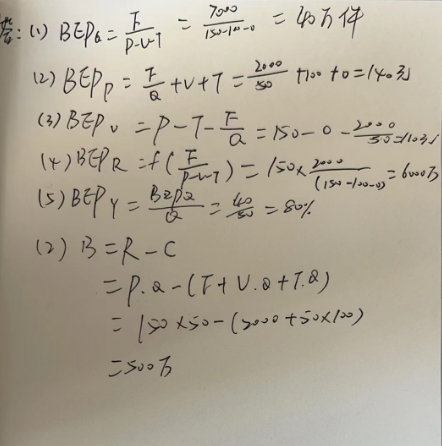 答:(1) BEP_Q = F/(P-V-T) = 7000/(150-100-0) = 40万件
(2) BEP_P = F/Q + V + T = 2000/50 + 100 + 0 = 140元
(3) BEP_V = P - T - F/Q = 150 - 0 - 2000/50 = 110元
(4) BEP_R = f(F/(P-V-T)) = 150 × 2000/(150-100-0) = 6000万
(5) BEP_Y = BEP_Q/Q = 40/50 = 80%
(2) B = R - C
= P.Q - (F + V.Q + T.Q)
= 150 × 50 - (2000 + 50×100)
= 500万